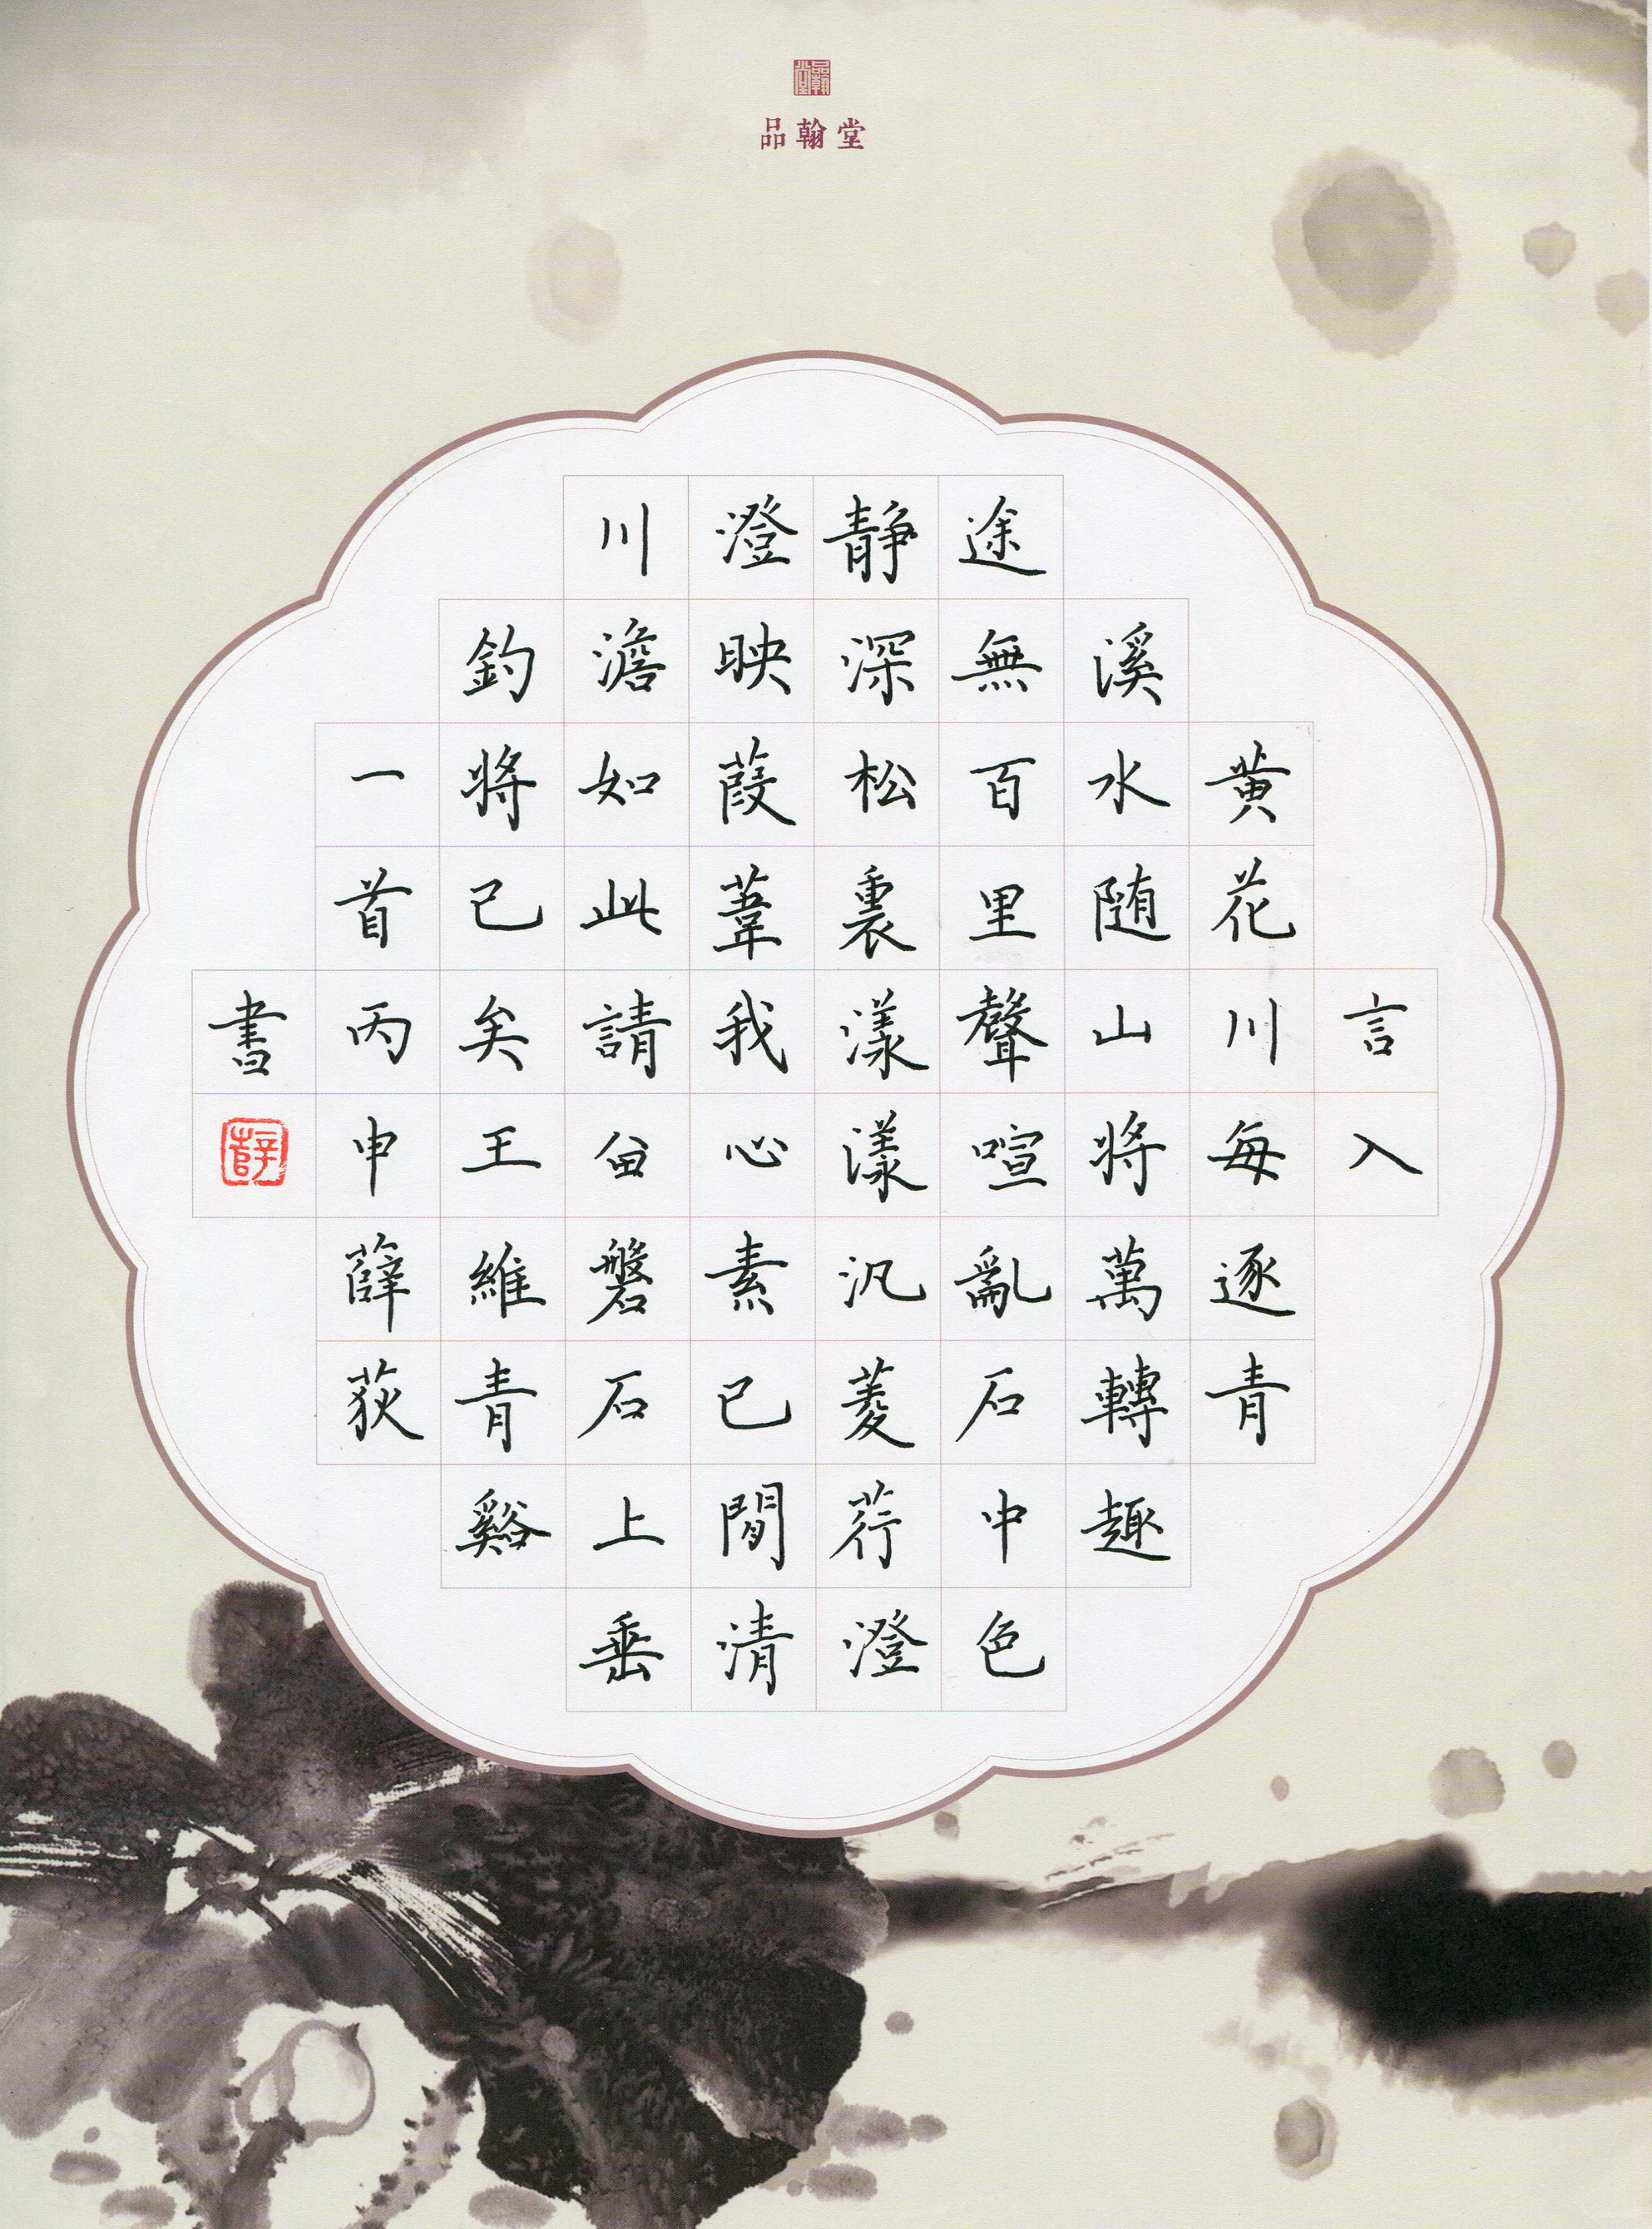 品翰堂
品翰堂
言入
黄花川每逐青
溪水随山將萬轉趣
途無百里聲喧亂石中色
静深松裏漾漾汎菱荇澄
澄映葭葦我心素已閒清
川澹如此請留磐石上垂
釣將已矣王維青谿
一首丙申薛荻
書
薛